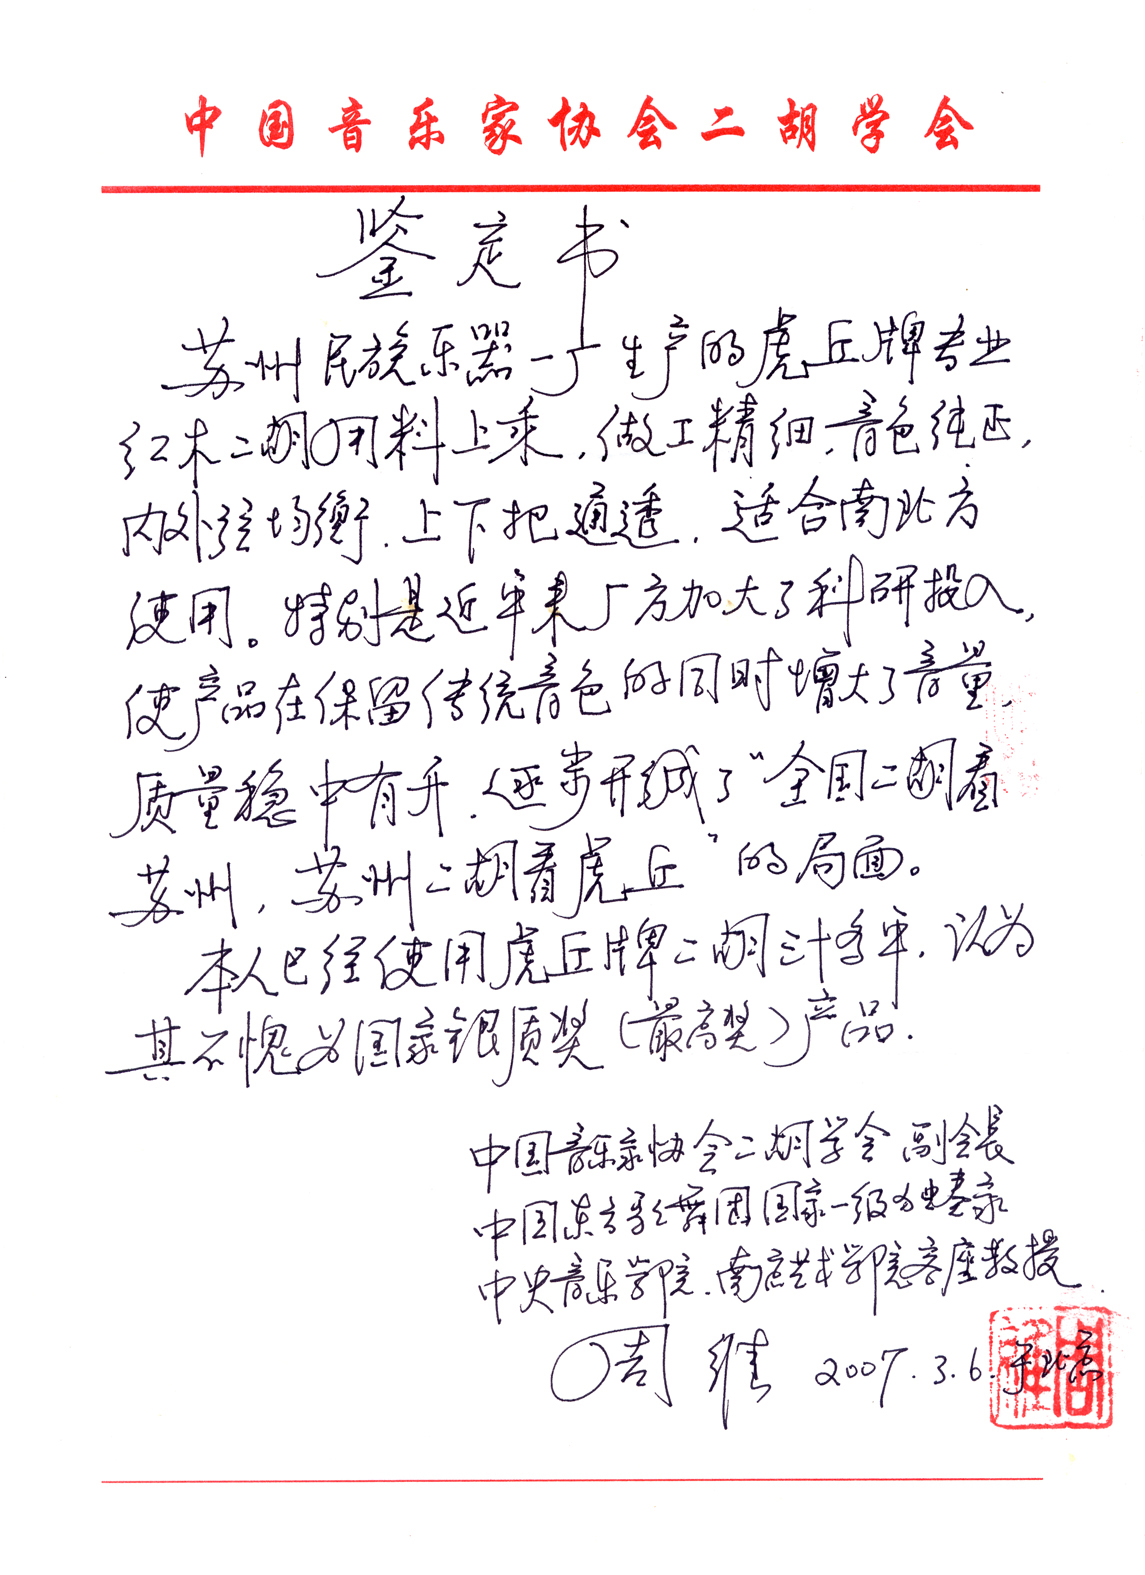 中国音乐家协会二胡学会
鉴定书
苏州民族乐器一厂生产的虎丘牌专业
红木二胡用料上乘，做工精细，音色纯正，
内外弦均衡，上下把通透，适合南北方
使用。特别是近年来厂方加大了科研投入，
使产品在保留传统音色的同时增大了音量，
质量稳中有升，逐步形成了“全国二胡看
苏州，苏州二胡看虎丘”的局面。
本人已经使用虎丘牌二胡三十多年，认为
其不愧为国家银质奖（最高奖）产品．
中国音乐家协会二胡学会副会长
中国东方歌舞团国家一级独奏家
中央音乐学院、南京艺术学院客座教授
周维 2007.3.6.于北京
周维